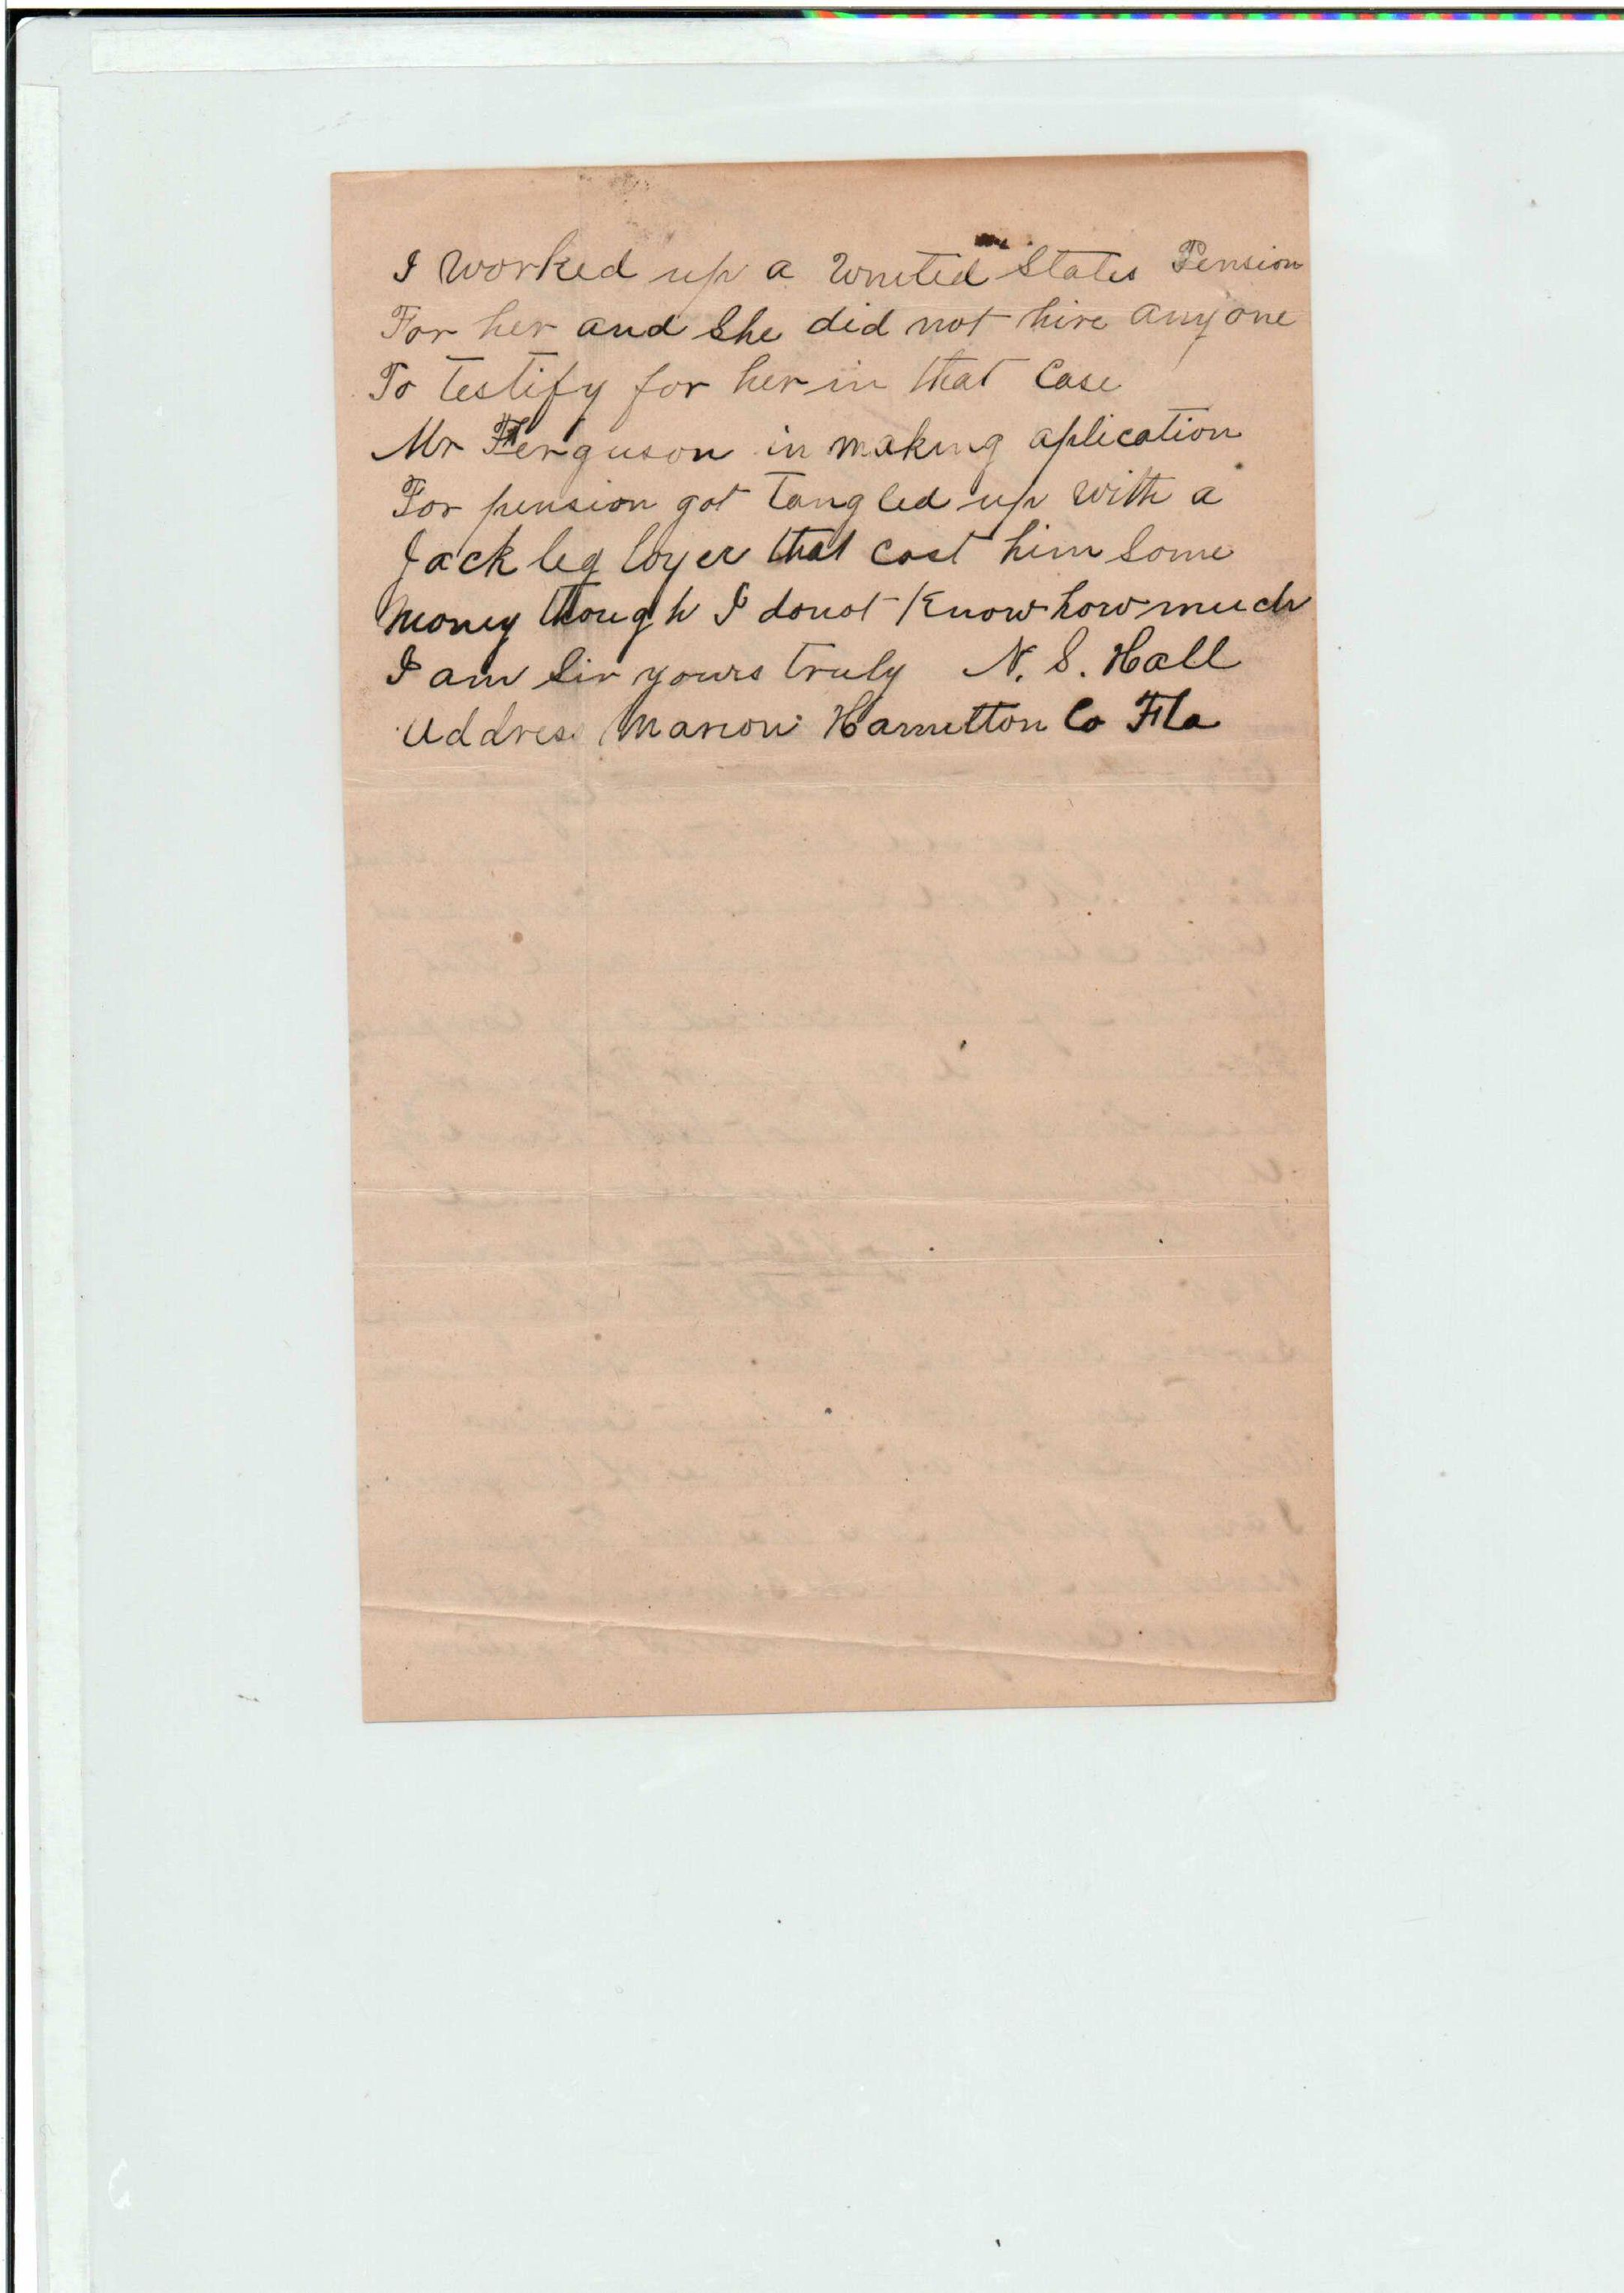 I worked up a United States Pension
For her and She did not hire any one
To testify for her in that Case
Mr Ferguson in making aplication
For pension got Tangled up with a
Jack leg loyer that cost him Some
Money though I donot Know how much
I am Sir yours truly N. S. Hall
Addres Marion Hamilton Co Fla